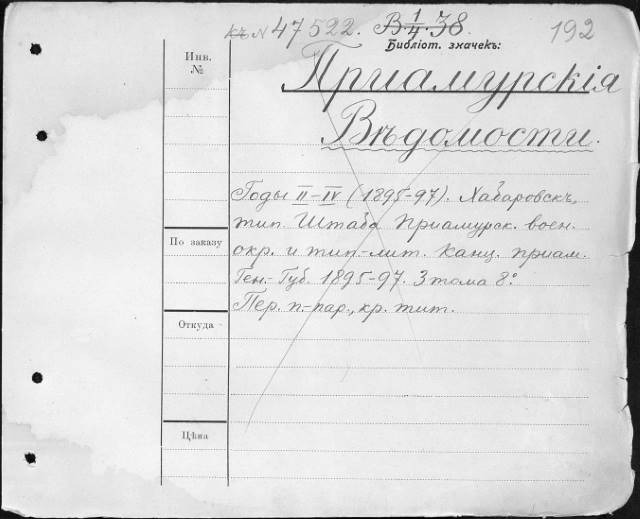 къ N 47522. В 1/4. 38. 192
Библіот. значекъ:
Инв. №
Приамурскія
Вѣдомости.
Годы II–IV (1895-97). Хабаровскъ,
тип. Штаба Приамурск. воен.
По заказу
окр. и тип.-лит. Канц. Приам.
Ген.-Губ. 1895-97. 3 тома 8º.
Пер. п.-пар., кр. тит.
Откуда
Цѣна